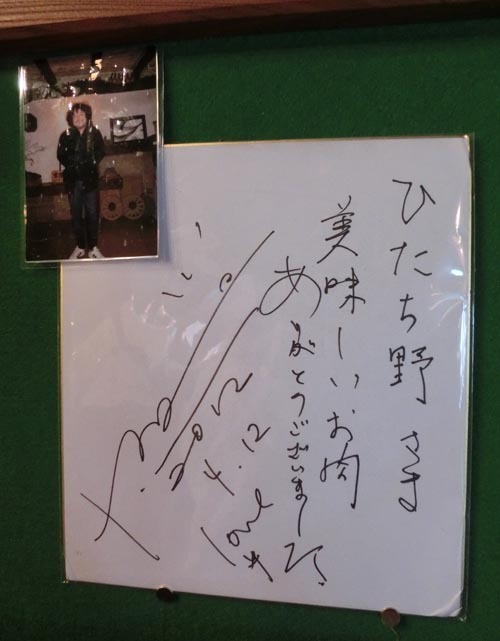 ひたち野さま
美味しいお肉
ありがとうございました!
2012
4.12
love